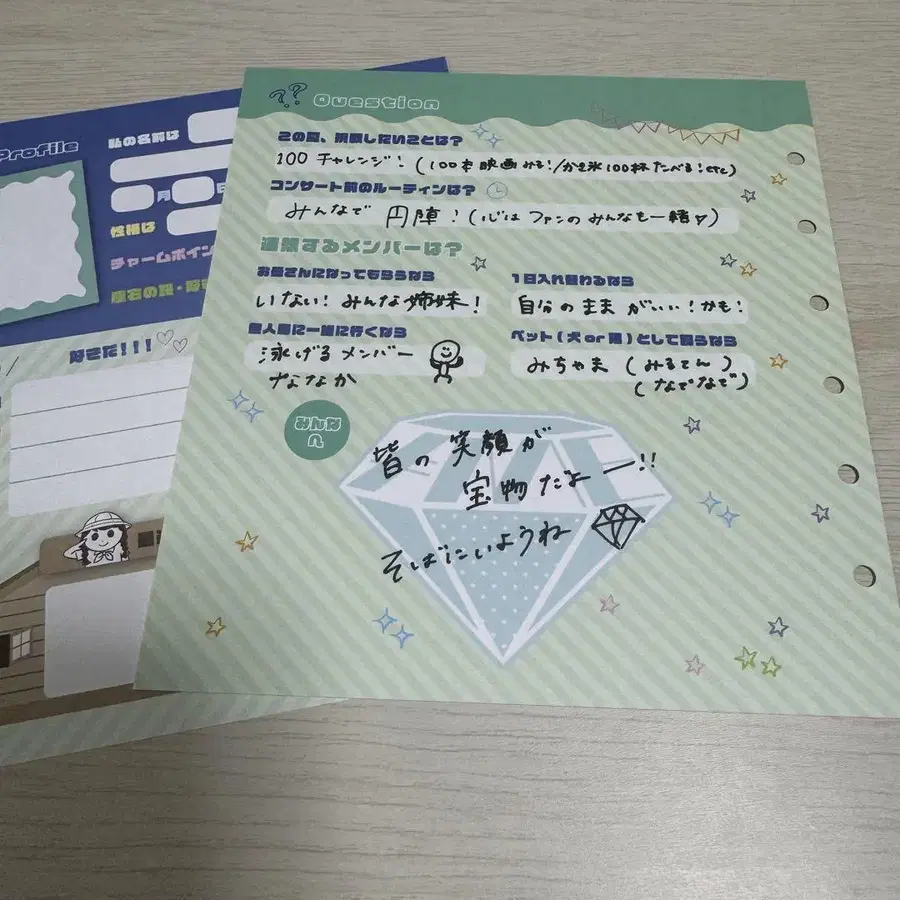 Profile
私の名前は
月
日
性格は
チャームポイン
座右の銘・好き
なきだ!!!
??
Question
この夏、挑戦したいことは?
100チャレンジ!(100本映画みる!/かき氷100杯たべる!etc)
コンサート前のルーティンは?
みんなで 円陣!(心は ファンの みんなも一緒♡)
連想するメンバーは?
お母さんになってもらうなら
いない!みんな姉妹!
1日入れ替わるなら
自分のまま がいい!かも!
無人島に一緒に行くなら
泳げるメンバー
ななか
ペット(犬or猫)として買うなら
みちゃま(みるてん)
(なでなで)
みんな
へ
皆の 笑顔が
宝物だよー!!
そばにいようね